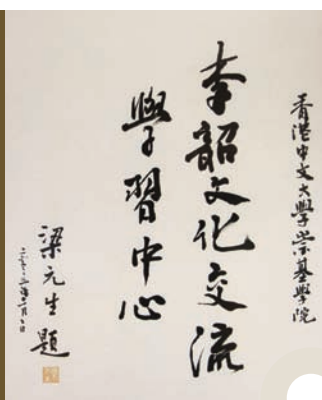 香港中文大學崇基學院
李韶文化交流
學習中心
梁元生題